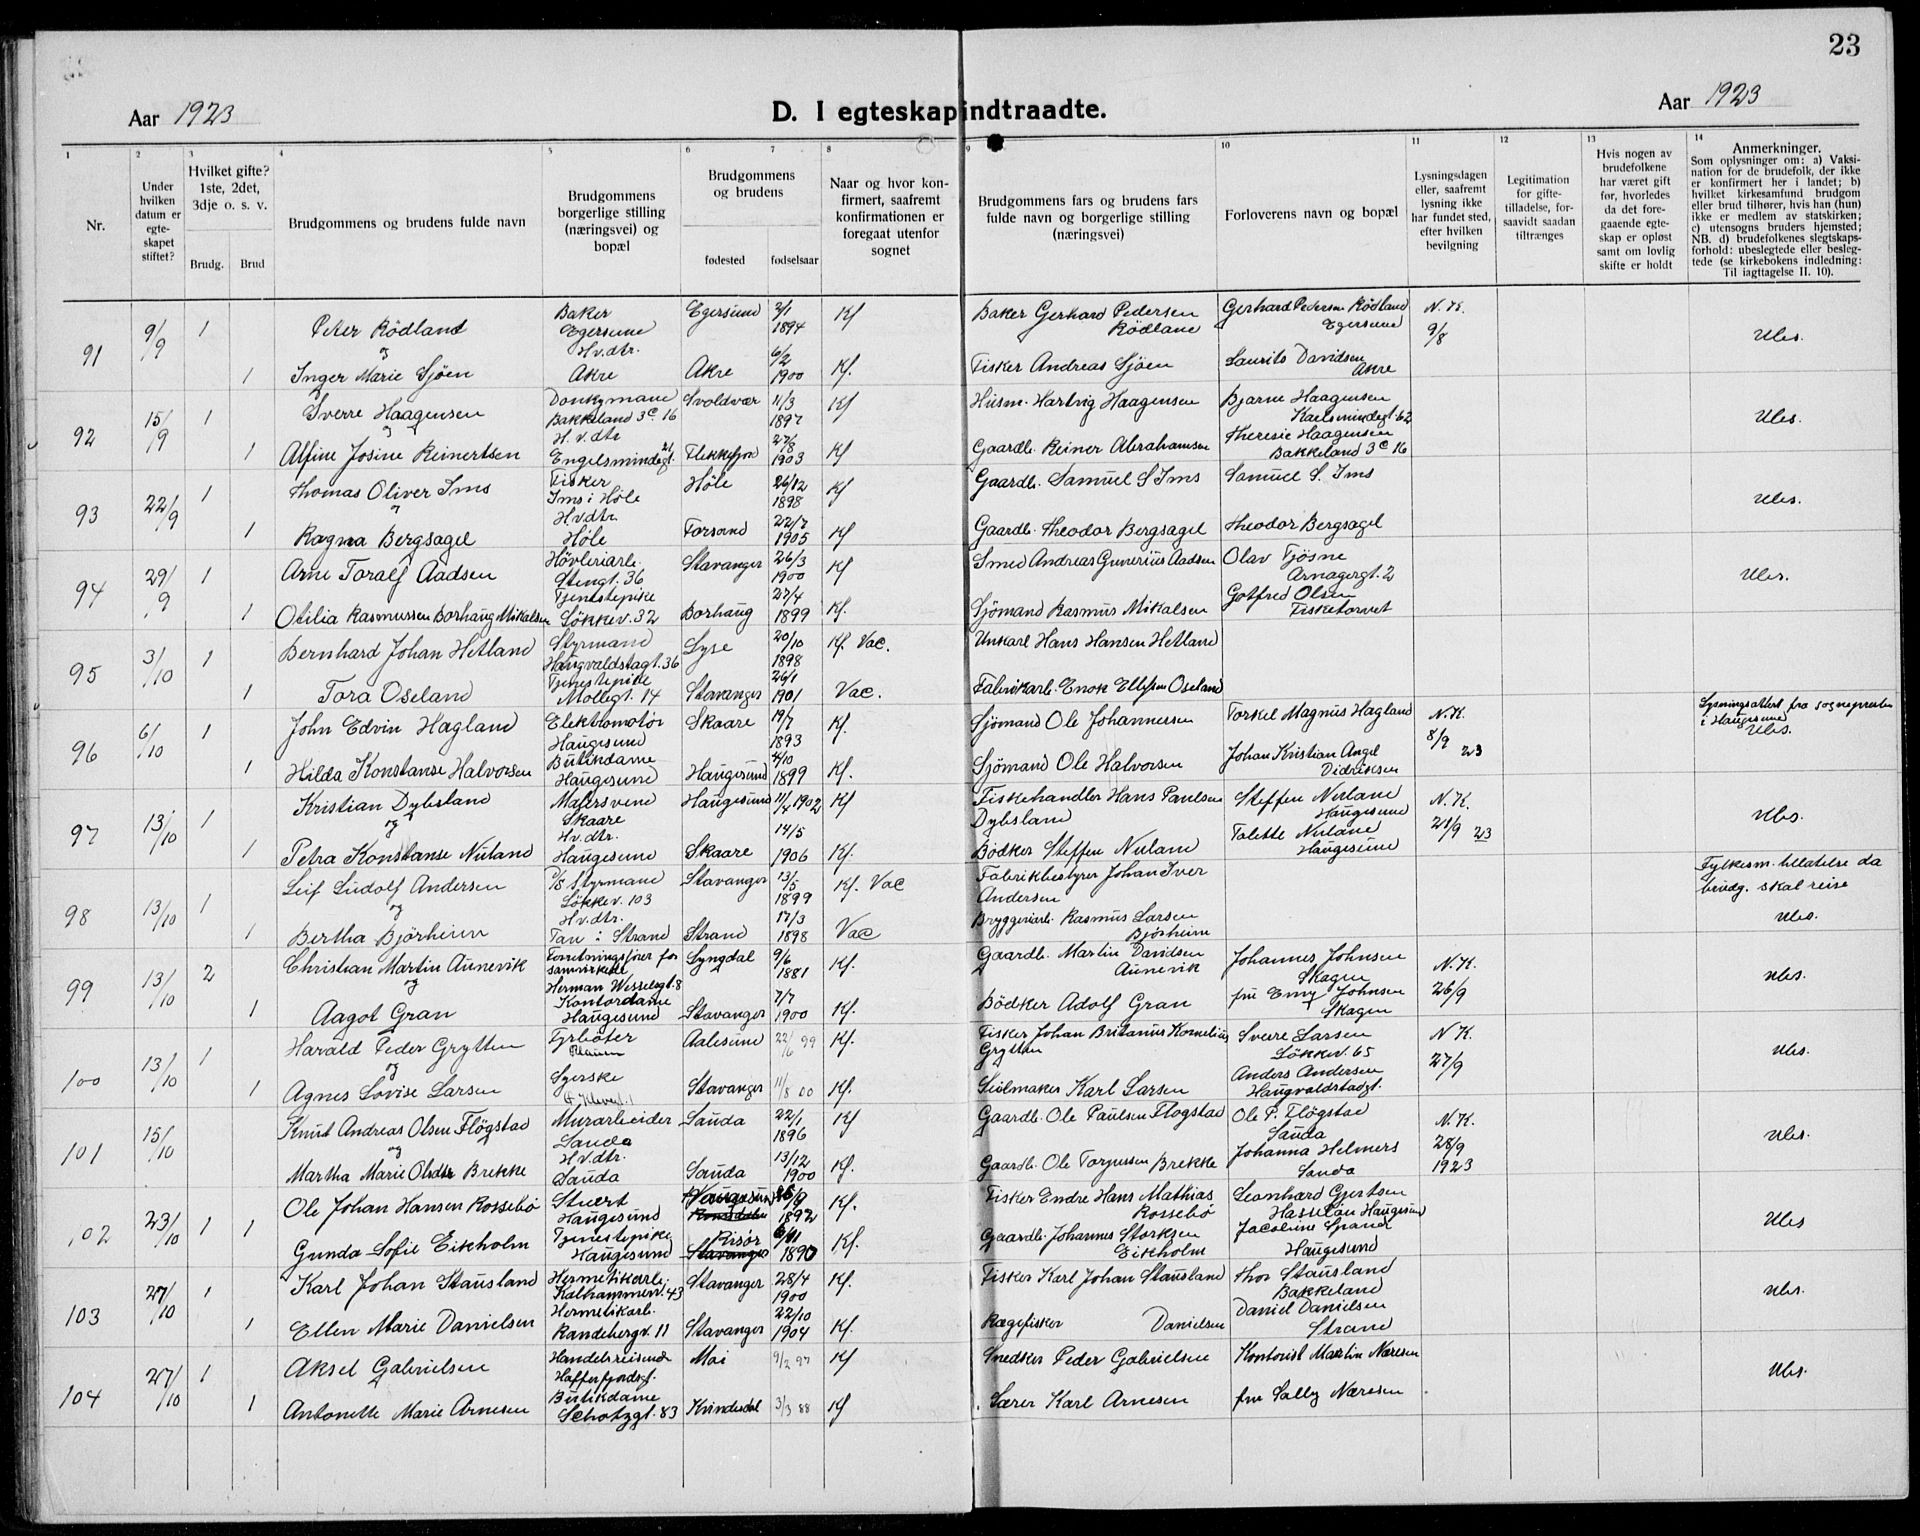 23
Aar 1923
D. I egteskap indtraadte.
Aar 1923
1 2 3 4 5 6 7 8 9 10 11 12 13 14
Nr.
Under hvilken datum er egte-skapet stiftet?
Hvilket gifte? 1ste, 2det, 3dje o. s. v.
Brudg. Brud
Brudgommens og brudens fulde navn
Brudgommens borgerlige stilling (næringsvei) og bopæl
Brudgommens og brudens
fødested fødselsaar
Naar og hvor kon-firmert, saafremt konfirmationen er foregaat utenfor sognet
Brudgommens fars og brudens fars fulde navn og borgerlige stilling (næringsvei)
Forloverens navn og bopæl
Lysningsdagen eller, saafremt lysning ikke har fundet sted, efter hvilken bevilgning
Legitimation for gifte-tilladelse, for-saavidt saadan tiltrænges
Hvis nogen av brudefolkene har været gift før, hvorledes da det fore-gaaende egte-skap er opløst samt om lovlig skifte er holdt
Anmerkninger.
Som oplysninger om: a) Vaksi-nation for de brudefolk, der ikke er konfirmert her i landet; b) hvilket kirkesamfund brudgom eller brud tilhører, hvis han (hun) ikke er medlem av statskirken; c) utensogns bruders hjemsted; NB. d) brudefolkenes slegtskaps-forhold: ubeslegtede eller besleg-tede (se kirkebokens indledning: Til iagttagelse II. 10).
91 9/9 1 Peter Rödland Baker Egersund Egersund 2/1 1894 Kf Baker Gerhard Pedersen Rödland Gerhard Pedersen Rödland Egersund N. K. 9/8 Ubs.
og
1 Inger Marie Sjöen Hv.dtr. Akre Akre 6/2 1900 Kf. Fisker Andreas Sjöen Laurits Davidsen Akre
92 15/9 1 Sverre Haagensen Donkymand Bakkeland 3c 16 Svoldvær 11/3 1897 Kf Husm. Hartvig Haagensen Bjarne Haagensen Karlsmindegt. 62 Ubs.
1 Alfine Josine Reinertsen H.v.dtr Engelsmindegt. 21 Flekkefjord 27/8 1903 Kf Gaardb. Reiner Abrahamsen Theresie Haagensen Bakkeland 3c 16
93 22/9 1 Thomas Oliver Ims Fisker Ims i Höle Höle 26/12 1898 Kf Gaardb. Samuel S Ims Samuel S. Ims Ubs.
og
1 Ragna Bergsagel Hvdtr. Höle Forsand 22/7 1905 Kf Gaardb. Theodor Bergsagel Theodor Bergsagel
94 29/9 1 Arne Toralf Aadsen Hövleriarb. Stengt. 36 Stavanger 26/3 1900 Kf Smed Andreas Gunerius Aadsen Olav Tjösne Arnagergt. 2 Ubs.
1 Otilia Rasmussen Borhaug Mikalsen Tjenestepike Lökkev. 32 Borhaug 27/4 1899 Kf. Sjömand Rasmus Mikalsen Gotfred Olsen Fisketorvet
95 3/10 1 Bernhard Johan Hetland Styrmand Haugvaldstagt. 36 Lyse 20/10 1898 Kf. Vac. Unkarl Hans Hansen Hetland
1 Tora Oseland Tjenestepike Møllegt. 14 Stavanger 26/1 1901 Vac. Fabrikarb. Enok Ellefsen Oseland
96 6/10 1 John Edvin Hagland Elektromotör Haugesund Skaare 19/7 1893 Kf. Sjömand Ole Johannesen Torkel Magnus Hagland N. K. 8/9 23 Lysningsattest fra sognepresten i Haugesund Ubs.
1 Hilda Konstanse Halvorsen Butikdame Haugesund Haugesund 4/10 1899 Kf. Sjömand Ole Halvorsen Johan Kristian Angel Didriksen
97 13/10 1 Kristian Dybsland Malersvend Skaare Haugesund 11/4 1902 Kf Fiskehandler Hans Paulsen Dybsland Steffen Nuland Haugesund N. K. 21/9 23 Ubs.
og
1 Petra Konstanse Nuland Hv.dtr. Haugesund Skaare 14/5 1906 Kf. Bödker Steffen Nuland Talette Nuland Haugesund
98 13/10 1 Leif Ludolf Andersen D/S Styrmand Lökkev. 103 Stavanger 13/5 1899 Kf. Vac Fabrikbestyrer Johan Iver Andersen Fylkesm. tillatelse da brudg. skal reise
og
1 Bertha Björheim Hv.dtr. Tau i Strand Strand 17/3 1898 Vac Bryggeriarb. Rasmus Larsen Bjorheim Ubs.
99 13/10 2 Christian Martin Aunevik Forretningsfører for samvirkelag Herman Wesselsgt. 8 Lyngdal 9/6 1881 Kf. Gaardb. Martin Davidsen Aunevik Johannes Johnsen Skagen N. K. 26/9 Ubs.
og
1 Aagot Gran Kontordame Haugesund Stavanger 7/7 1900 Kf. Bödker Adolf Gran fru Emy Johnsen Skagen
100 13/10 1 Harald Peder Grytten Fyrböter Aalesund 22/6 99 Kf. Fisker Johan Britanus Kornelius Grytten Sverre Larsen Lökkev. 65 N K. 27/9 Ubs.
og
1 Agnes Lovise Larsen Syerske Stavanger 11/8 00 Kf. Seilmaker Karl Larsen Anders Andersen Haugvaldstadgt.
101 15/10 Knut Andreas Olsen Flögstad Murarbeider Sauda Sauda 22/1 1896 Kf Gaardb. Ole Paulsen Flogstad Ole P. Flögstad Sauda N. K. 28/9 1923 Ubs.
og
Martha Marie Olsdtr Brekke Hv.dtr. Sauda Sauda 13/12 1900 Kf. Gaardb. Ole Torjussen Brekke Johanna Helmers Sauda
102 23/10 1 Ole Johan Hansen Rossebö Stuert Haugesund Haugesund 1892 Kf. Fisker Endre Hans Mathias Rossebö Leonhard Gjertsen Hasseløen Haugesund Ubs
1 Gunda Sofie Eikholm Tjenestepike Haugesund Risör Stavanger 6/11 1890 Kf. Gaardb. Johannes Storksen Eikholm Jacobine Haugesund
103 27/10 1 Karl Johan Stausland Hermetikarb. Kalhammerv. 43 Stavanger 28/4 1900 Kf. Fisker Karl Johan Stausland Thor Stausland Bakkeland Ubs.
1 Ellen Marie Danielsen Hermetikarb. Randebergv. 11 Stavanger 22/10 1904 Kf. Rægefisker Danielsen Daniel Danielsen Strand
104 27/10 1 Aksel Gabrielsen Handelsreisende Hafrsfjordsgt. Moi 9/2 97 Kf Snedker Peder Gabrielsen Kontorist Martin Næresen Ubs.
1 Antonette Marie Arnesen Butikdame Schotzgt. 83 Kvinesdal 3/3 88 Kf Lærer Karl Arnesen fru Sally Næresen